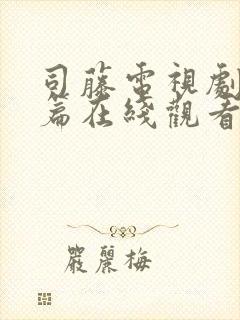 司藤電視劇
篇在綫觀看
嚴麗梅